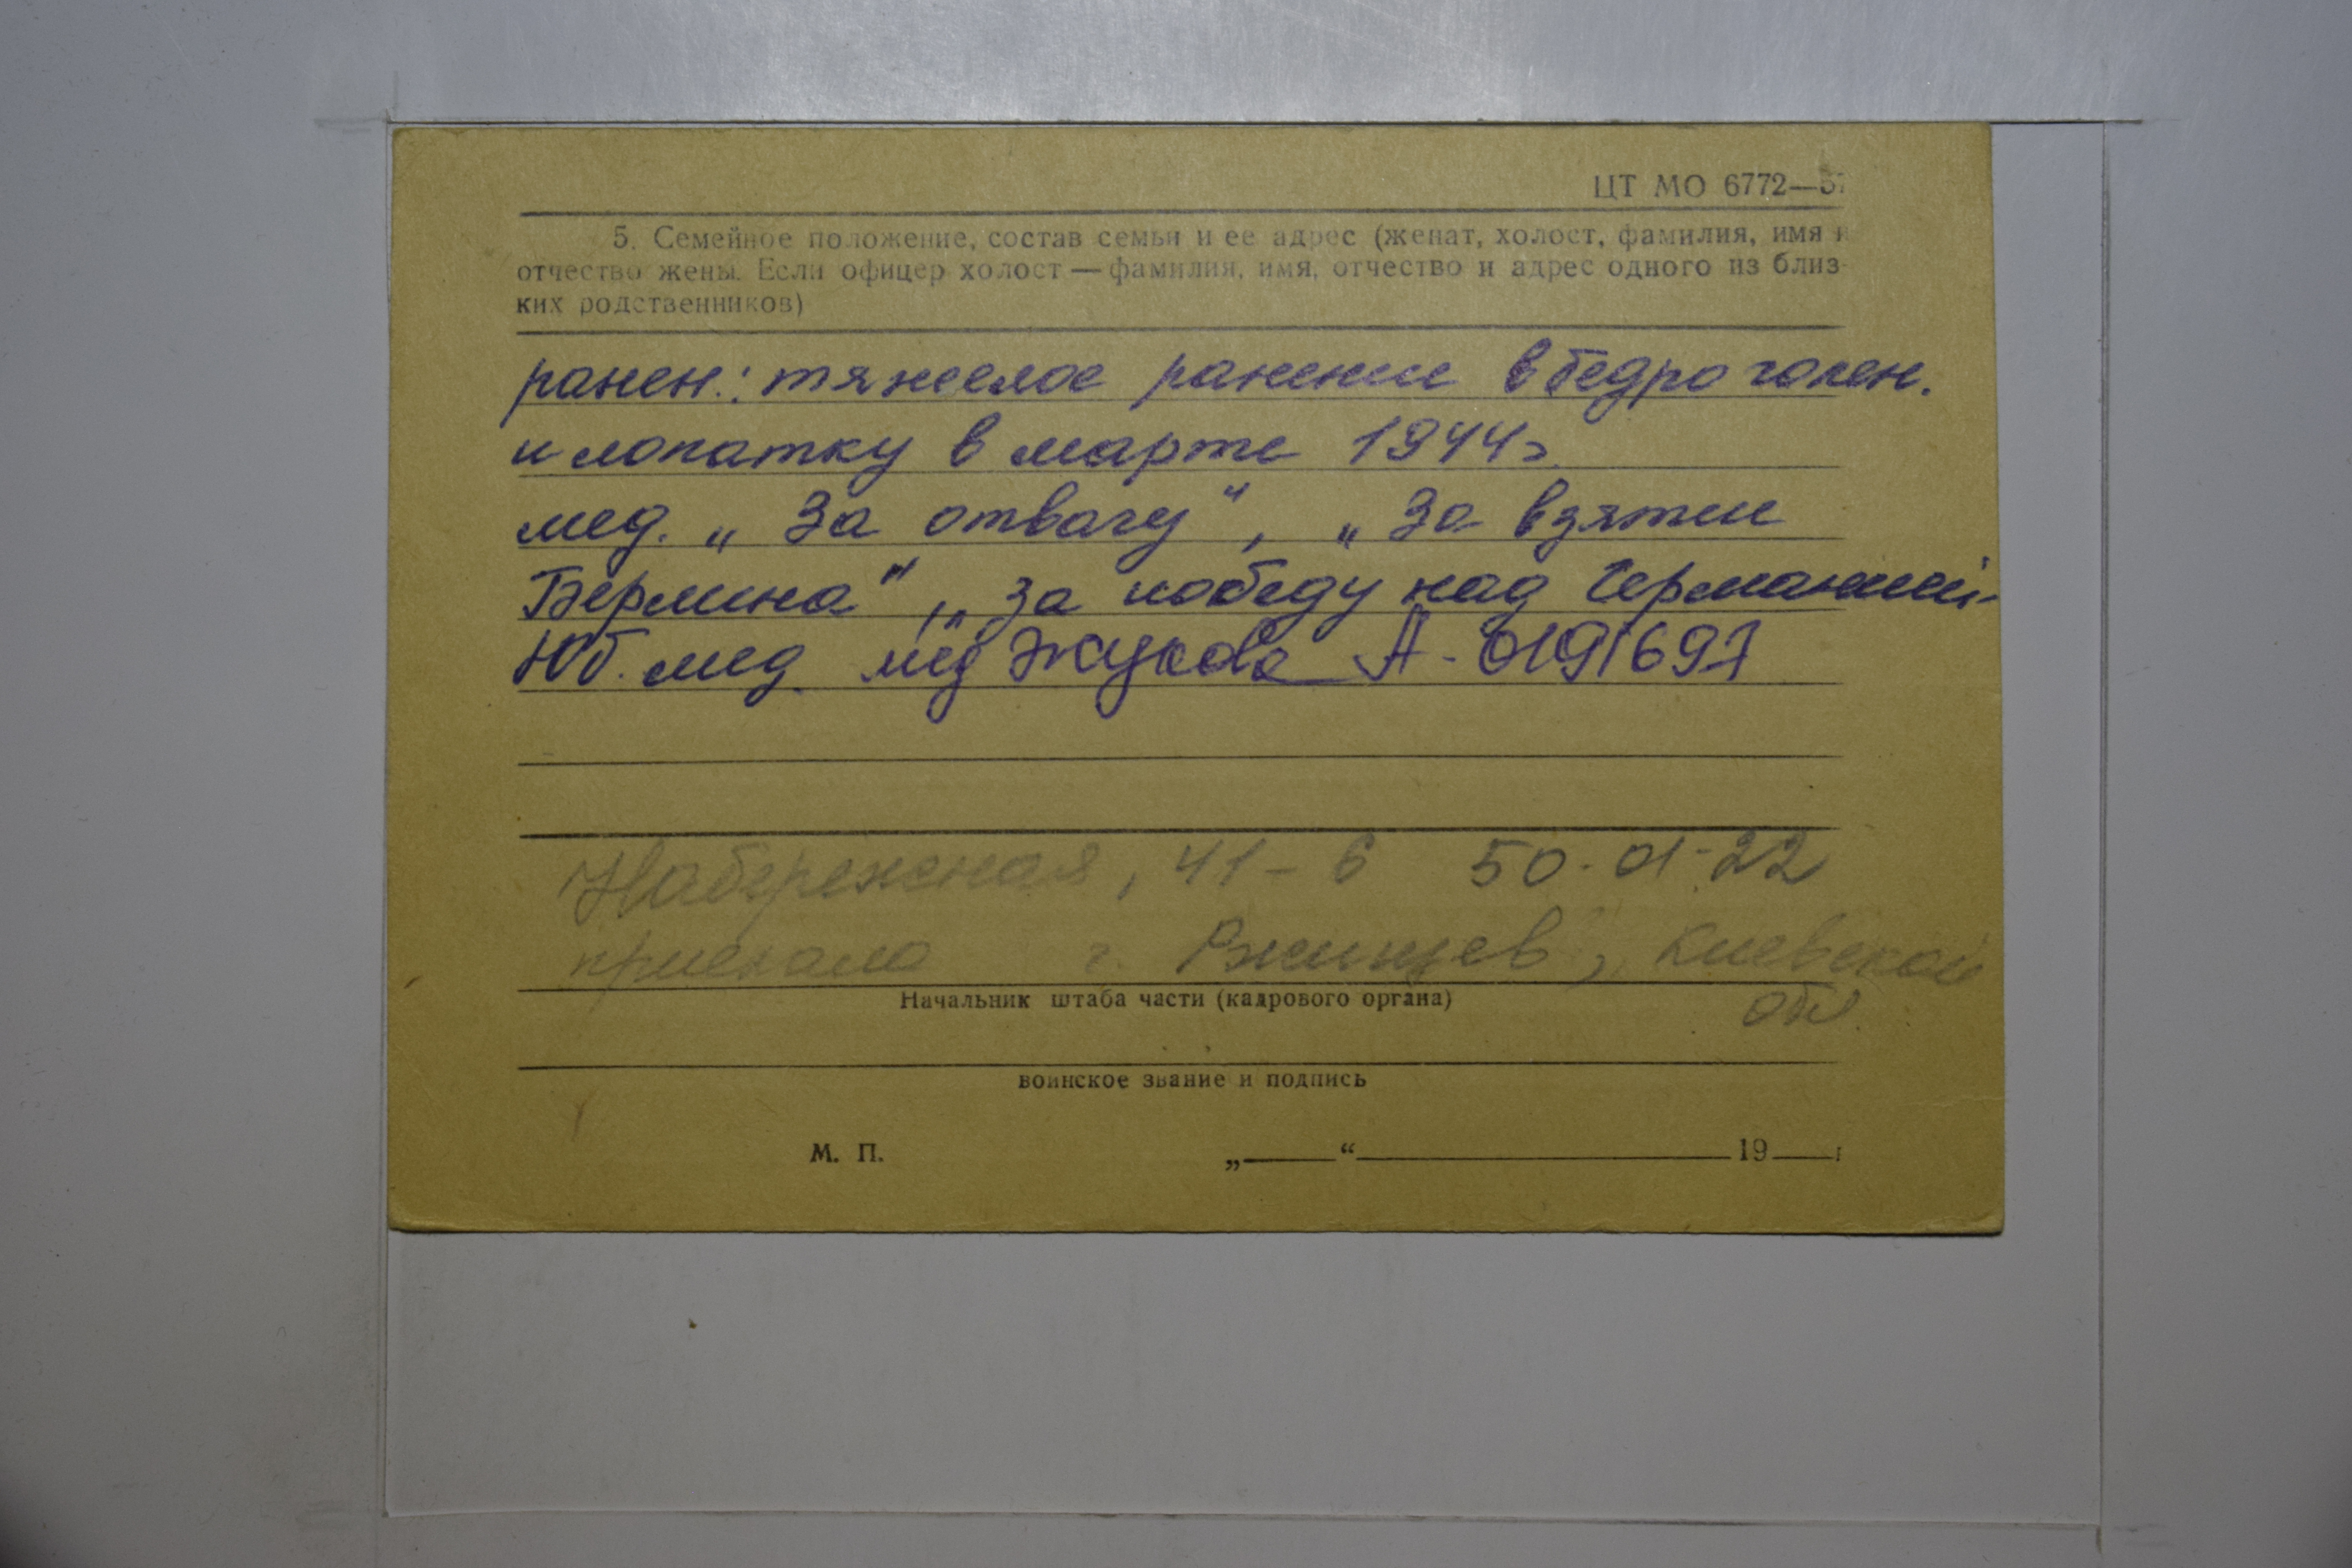 ЦТ МО 6772—57
5. Семейное положение, состав семьи и ее адрес (женат, холост, фамилия, имя и
отчество жены. Если офицер холост — фамилия, имя, отчество и адрес одного из близ-
ких родственников)
ранен.: тяжелое ранение в бедро голен.
и лопатку в марте 1944г.
мед. „За отвагу", „За взятие
Берлина", „За победу над Германией"
Юб. мед. мед Жукова А-0191697
Набережная, 41-6 50-01-22
приехала г. Ржищев, Киевской
обл.
Начальник штаба части (кадрового органа)
воинское звание и подпись
М. П. „ “ 19 г